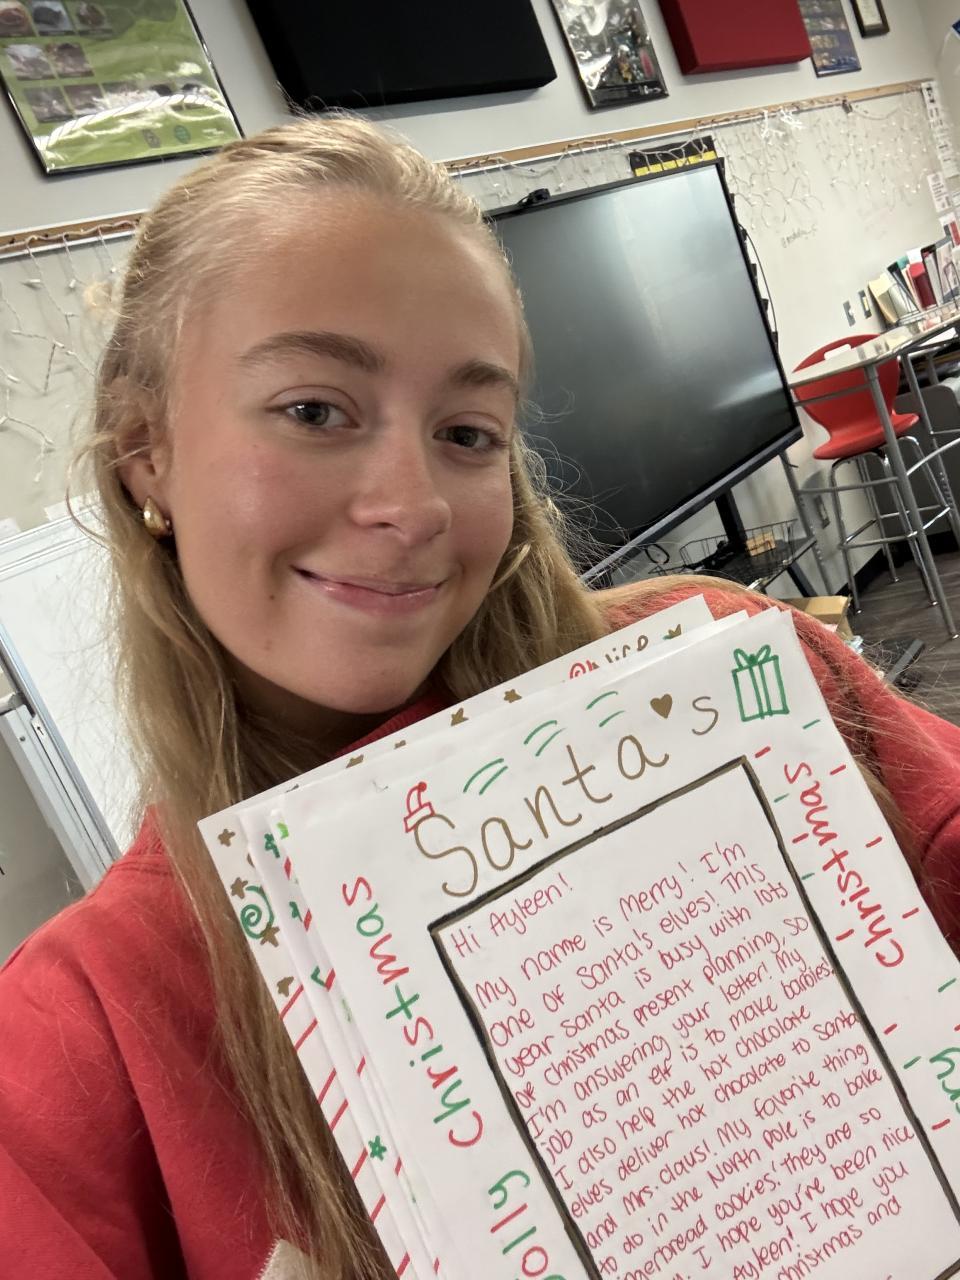 nice
Santa's
christmas
christmas
Hi Ayleen!
My name is Merry! I'm
one of Santa's elves! This
year santa is busy with lots
of christmas present planning, so
I'm answering your letter! My
job as an elf is to make barbies!
I also help the hot chocolate
elves deliver hot chocolate to Santa
and Mrs. claus! My favorite thing
to do in the North pole is to bake
gingerbread cookies! they are so
I hope you've been nice
Ayleen! I hope you
christmas and